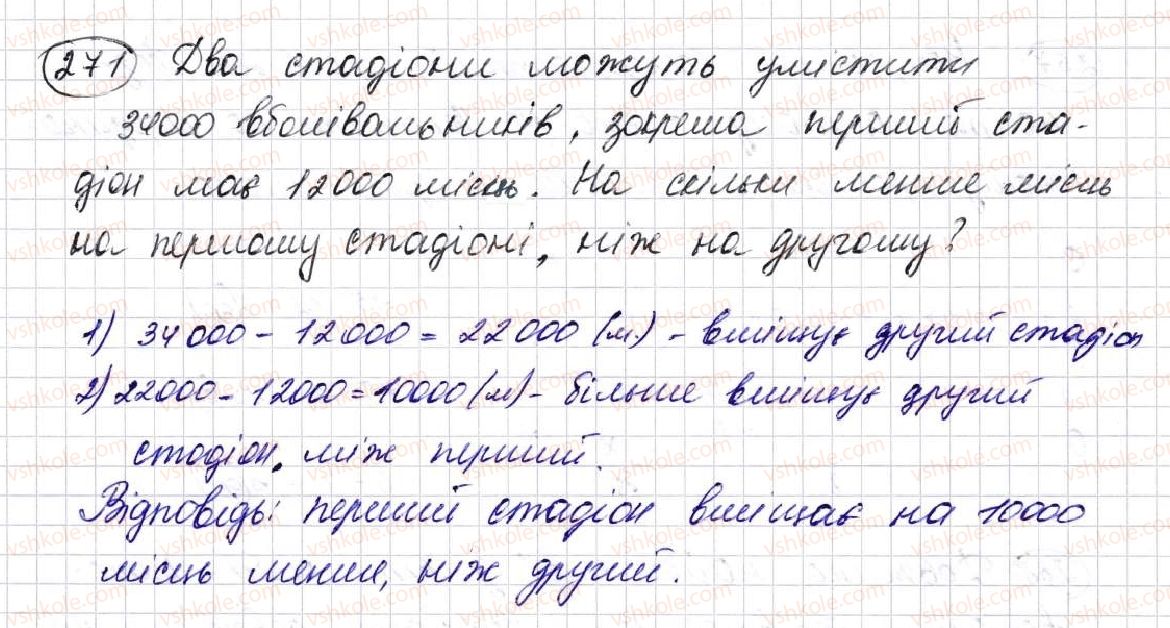 271 Два стадіони можуть умістити
34000 вболівальників, зокрема перший ста-
діон має 12000 місць. На скільки менше місць
на першому стадіоні, ніж на другому?
1) 34000 - 12000 = 22000 (м.) - вміщує другий стадіон
2) 22000 - 12000 = 10000 (м) - більше вміщує другий
стадіон, між перший.
Відповідь: перший стадіон вміщає на 10000
місць менше, ніж другий.